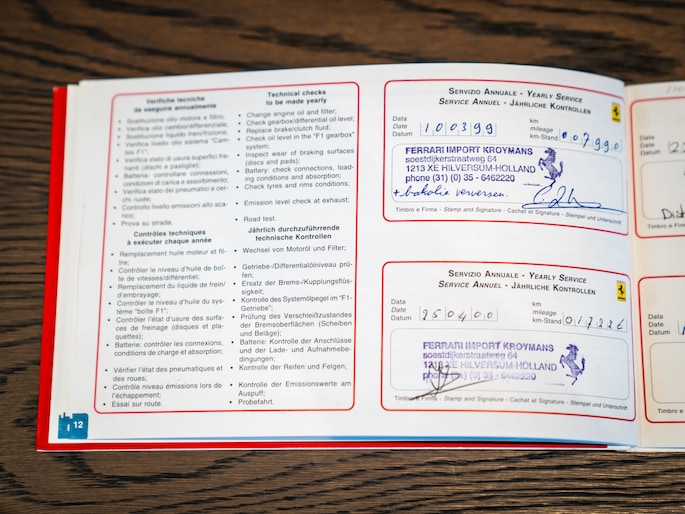 Verifiche tecniche
da eseguire annualmente
• Sostituzione olio motore e filtro;
• Verifica olio cambio/differenziale;
• Sostituzione liquido freni/frizione;
• Verifica livello olio sistema "Cambio F1";
• Verifica stato di usura superfici frenanti (dischi e pastiglie);
• Batteria: controllare connessioni, condizioni di carica e assorbimento;
• Verifica stato dei pneumatici e cerchi ruote;
• Controllo livello emissioni allo scarico;
• Prova su strada.
Technical checks
to be made yearly
• Change engine oil and filter;
• Check gearbox/differential oil level;
• Replace brake/clutch fluid;
• Check oil level in the "F1 gearbox" system;
• Inspect wear of braking surfaces (discs and pads);
• Battery: check connections, loading conditions and absorption;
• Check tyres and rims conditions;
• Emission level check at exhaust;
• Road test.
Contrôles techniques
à exécuter chaque année
• Remplacement huile moteur et filtre;
• Contrôler le niveau d'huile de boîte de vitesses/différentiel;
• Remplacement du liquide de frein/d'embrayage;
• Contrôler le niveau d'huile du système "boîte F1";
• Contrôler l'état d'usure des surfaces de freinage (disques et plaquettes);
• Batterie: contrôler les connexions, conditions de charge et absorption;
• Vérifier l'état des pneumatiques et des roues;
• Contrôle niveau émissions lors de l'échappement;
• Essai sur route.
Jährlich durchzuführende
technische Kontrollen
• Wechsel von Motoröl und Filter;
• Getriebe-/Differentialölniveau prüfen;
• Ersatz der Brems-/Kupplungsflüssigkeit;
• Kontrolle des Systemölpegel im "F1-Getriebe";
• Prüfung des Verschleißzustandes der Bremsoberflächen (Scheiben und Beläge);
• Batterie: Kontrolle der Anschlüsse und der Lade- und Aufnahmebedingungen;
• Kontrolle der Reifen und Felgen;
• Kontrolle der Emissionswerte am Auspuff;
• Probefahrt.
12
SERVIZIO ANNUALE - YEARLY SERVICE
SERVICE ANNUEL - JÄHRLICHE KONTROLLEN
Data
Date
Datum 100399
km
mileage
km-Stand 007990
FERRARI IMPORT KROYMANS
soestdijkerstraatweg 64
1213 XE HILVERSUM-HOLLAND
phone (31) (0) 35 - 6462220
+ bakolie verversen.
Timbro e Firma - Stamp and Signature - Cachet et Signature - Stempel und Unterschrift
SERVIZIO ANNUALE - YEARLY SERVICE
SERVICE ANNUEL - JÄHRLICHE KONTROLLEN
Data
Date
Datum 250400
km
mileage
km-Stand 017226
FERRARI IMPORT KROYMANS
soestdijkerstraatweg 64
1213 XE HILVERSUM-HOLLAND
phone (31) (0) 35 - 6462220
Timbro e Firma - Stamp and Signature - Cachet et Signature - Stempel und Unterschrift
Data
Date
Datum
Timbro e
Data
Date
Datum
Timbro e